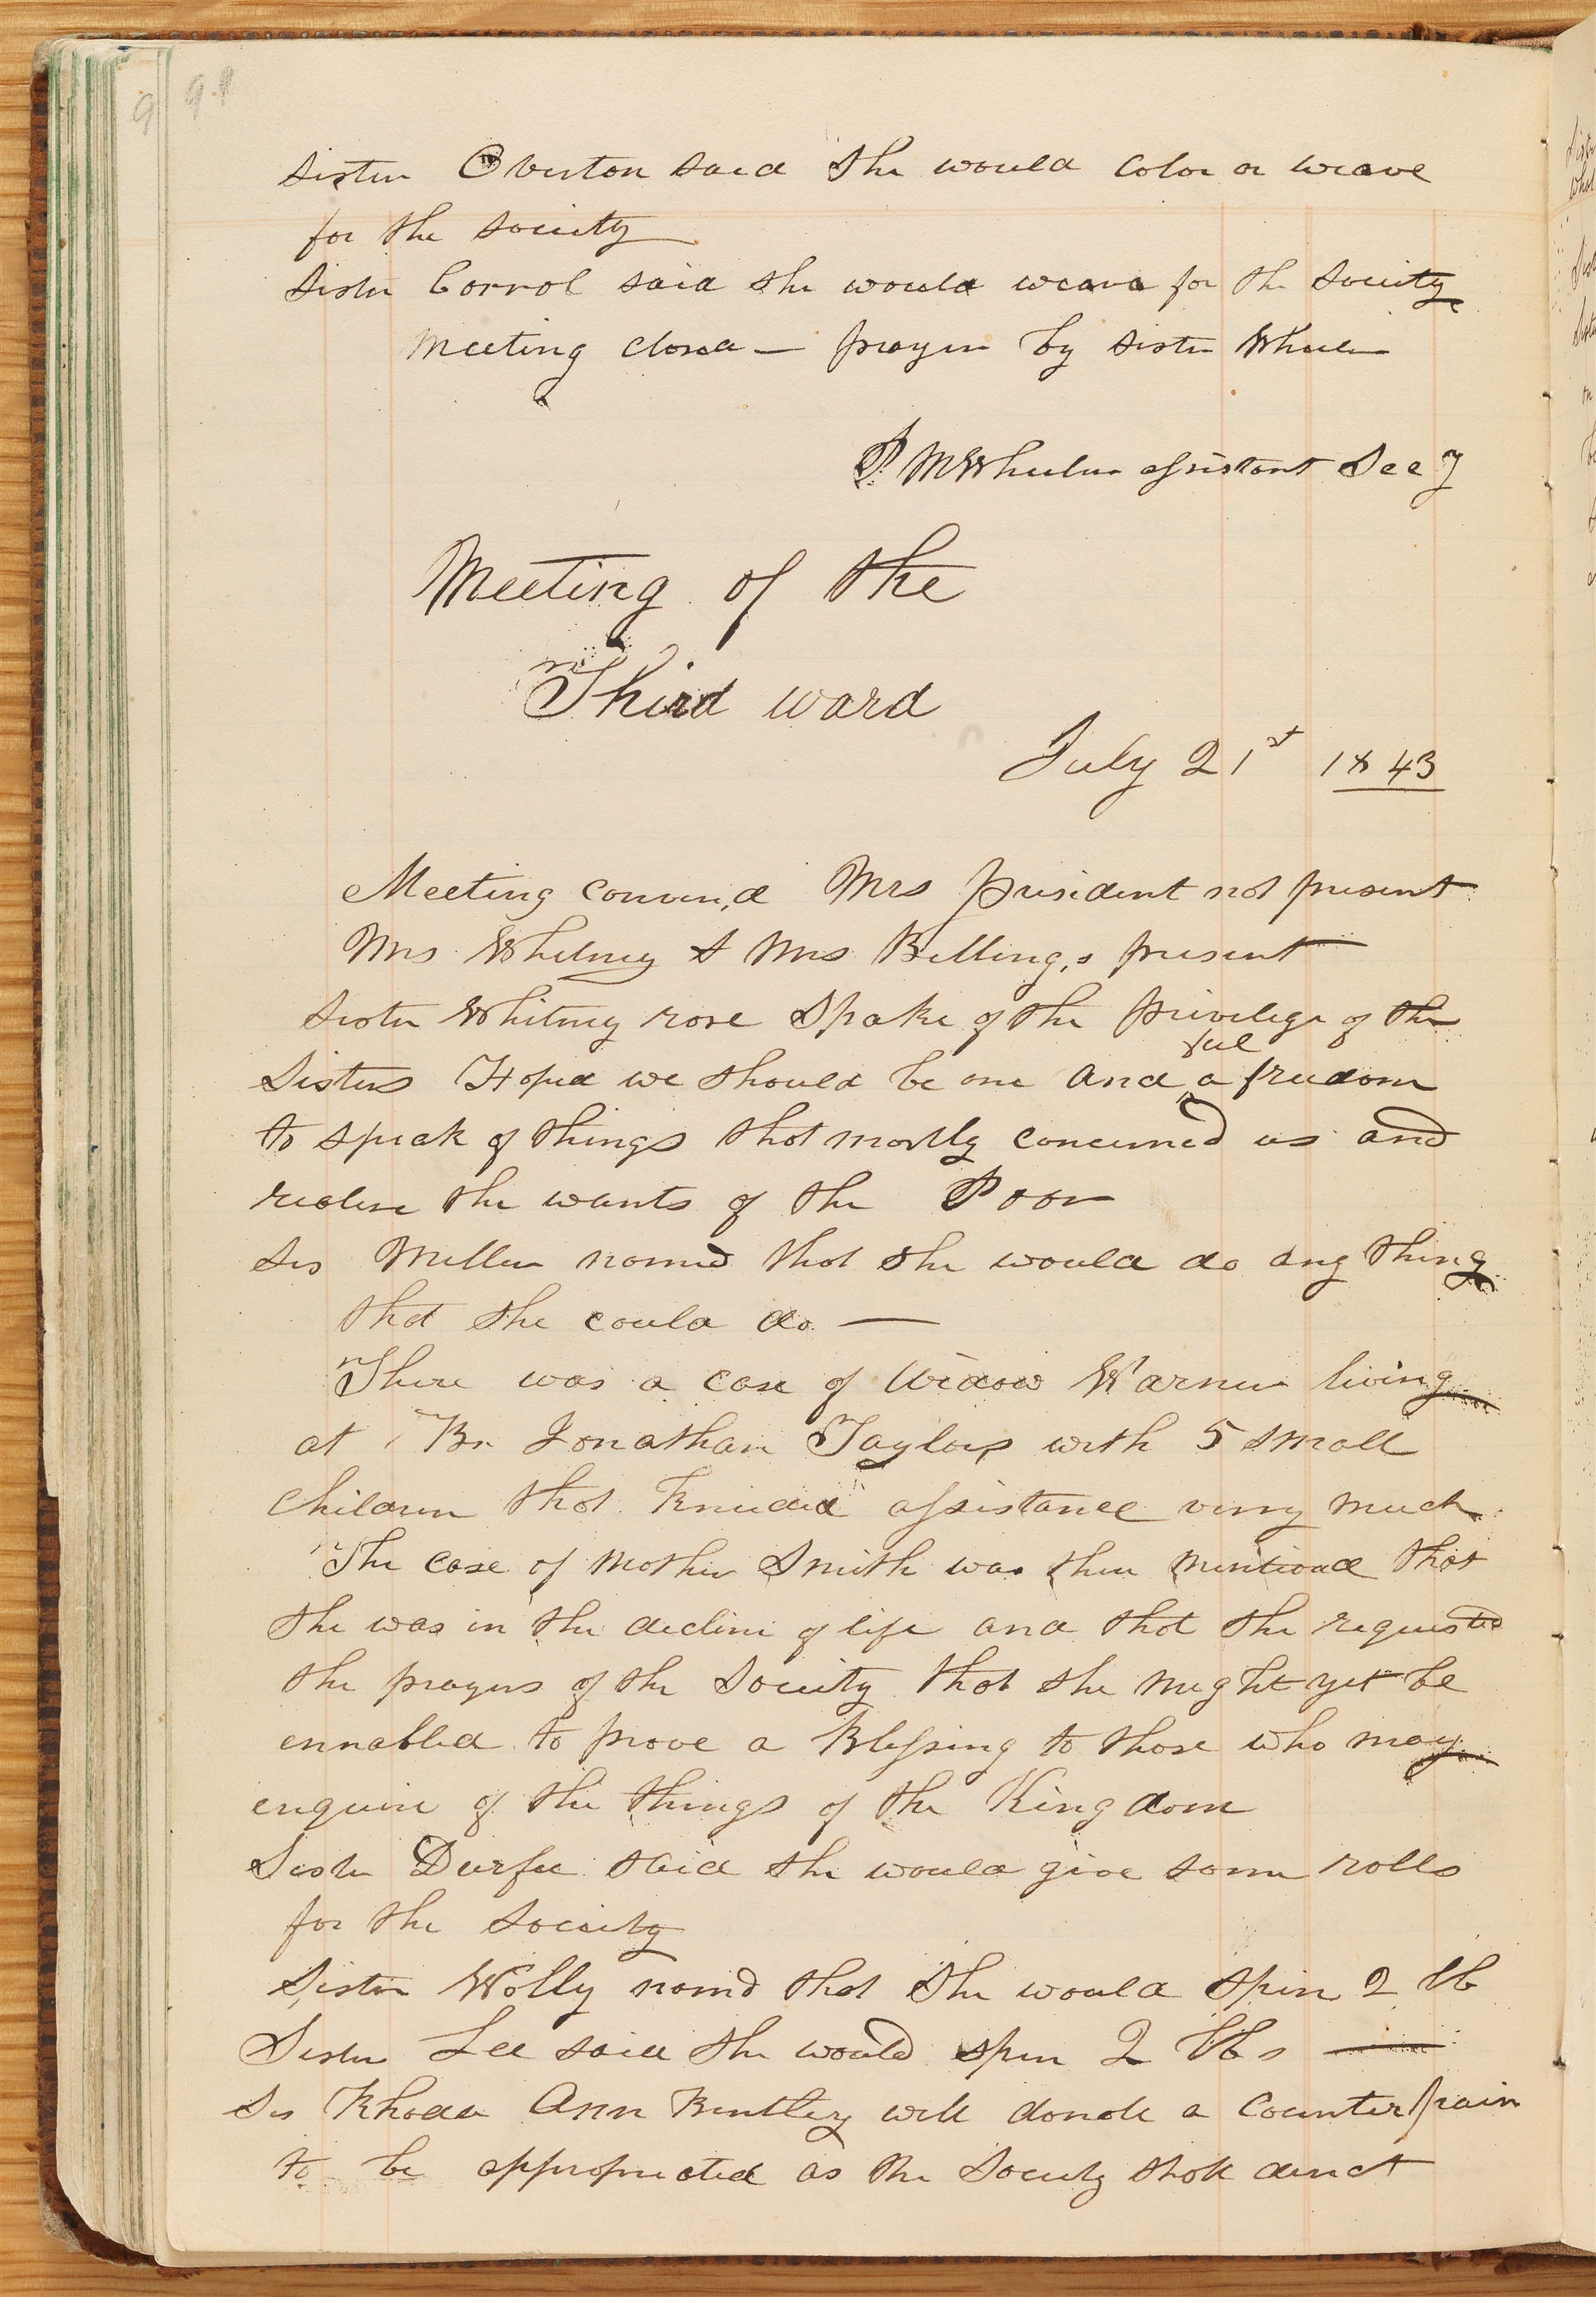 99
Sister Overton said she would color or weave
for the society
Sister Corrol said she would weave for the Society
Meeting closed — prayer by Sister Wheeler
P. M Wheeler assistant Secy
Meeting of the
Third ward
July 21st 1843
Meeting convin,d Mrs president not present
Mrs Whitney & Mrs Billing,s present
Sister Whitney rose Spake of the privilege of the
feel
Sisters Hoped we should be one and a freedom
to speak of things that mostly concerned us and
realise the wants of the Poor
Sis Miller nam'd that she would do any thing
that she could do —
There was a case of Widow Warner living
at Br. Jonathan Taylors with 5 small
Children that needed assistance very much
The case of Mother Smith was then mentioned that
she was in the decline of life and that she requested
the prayers of the Society that she might yet be
ennabled to prove a Blessing to those who may
enquire of the things of the Kingdom
Sister Durfee said she would give some rolls
for the society
Sister Wolly nam'd that she would spin 2 lb
Sister Lee said she would spin 2 lbs —
Sis Rhoda Ann Bentley will donate a Counterpain
to be appropriated as the Society shall direct